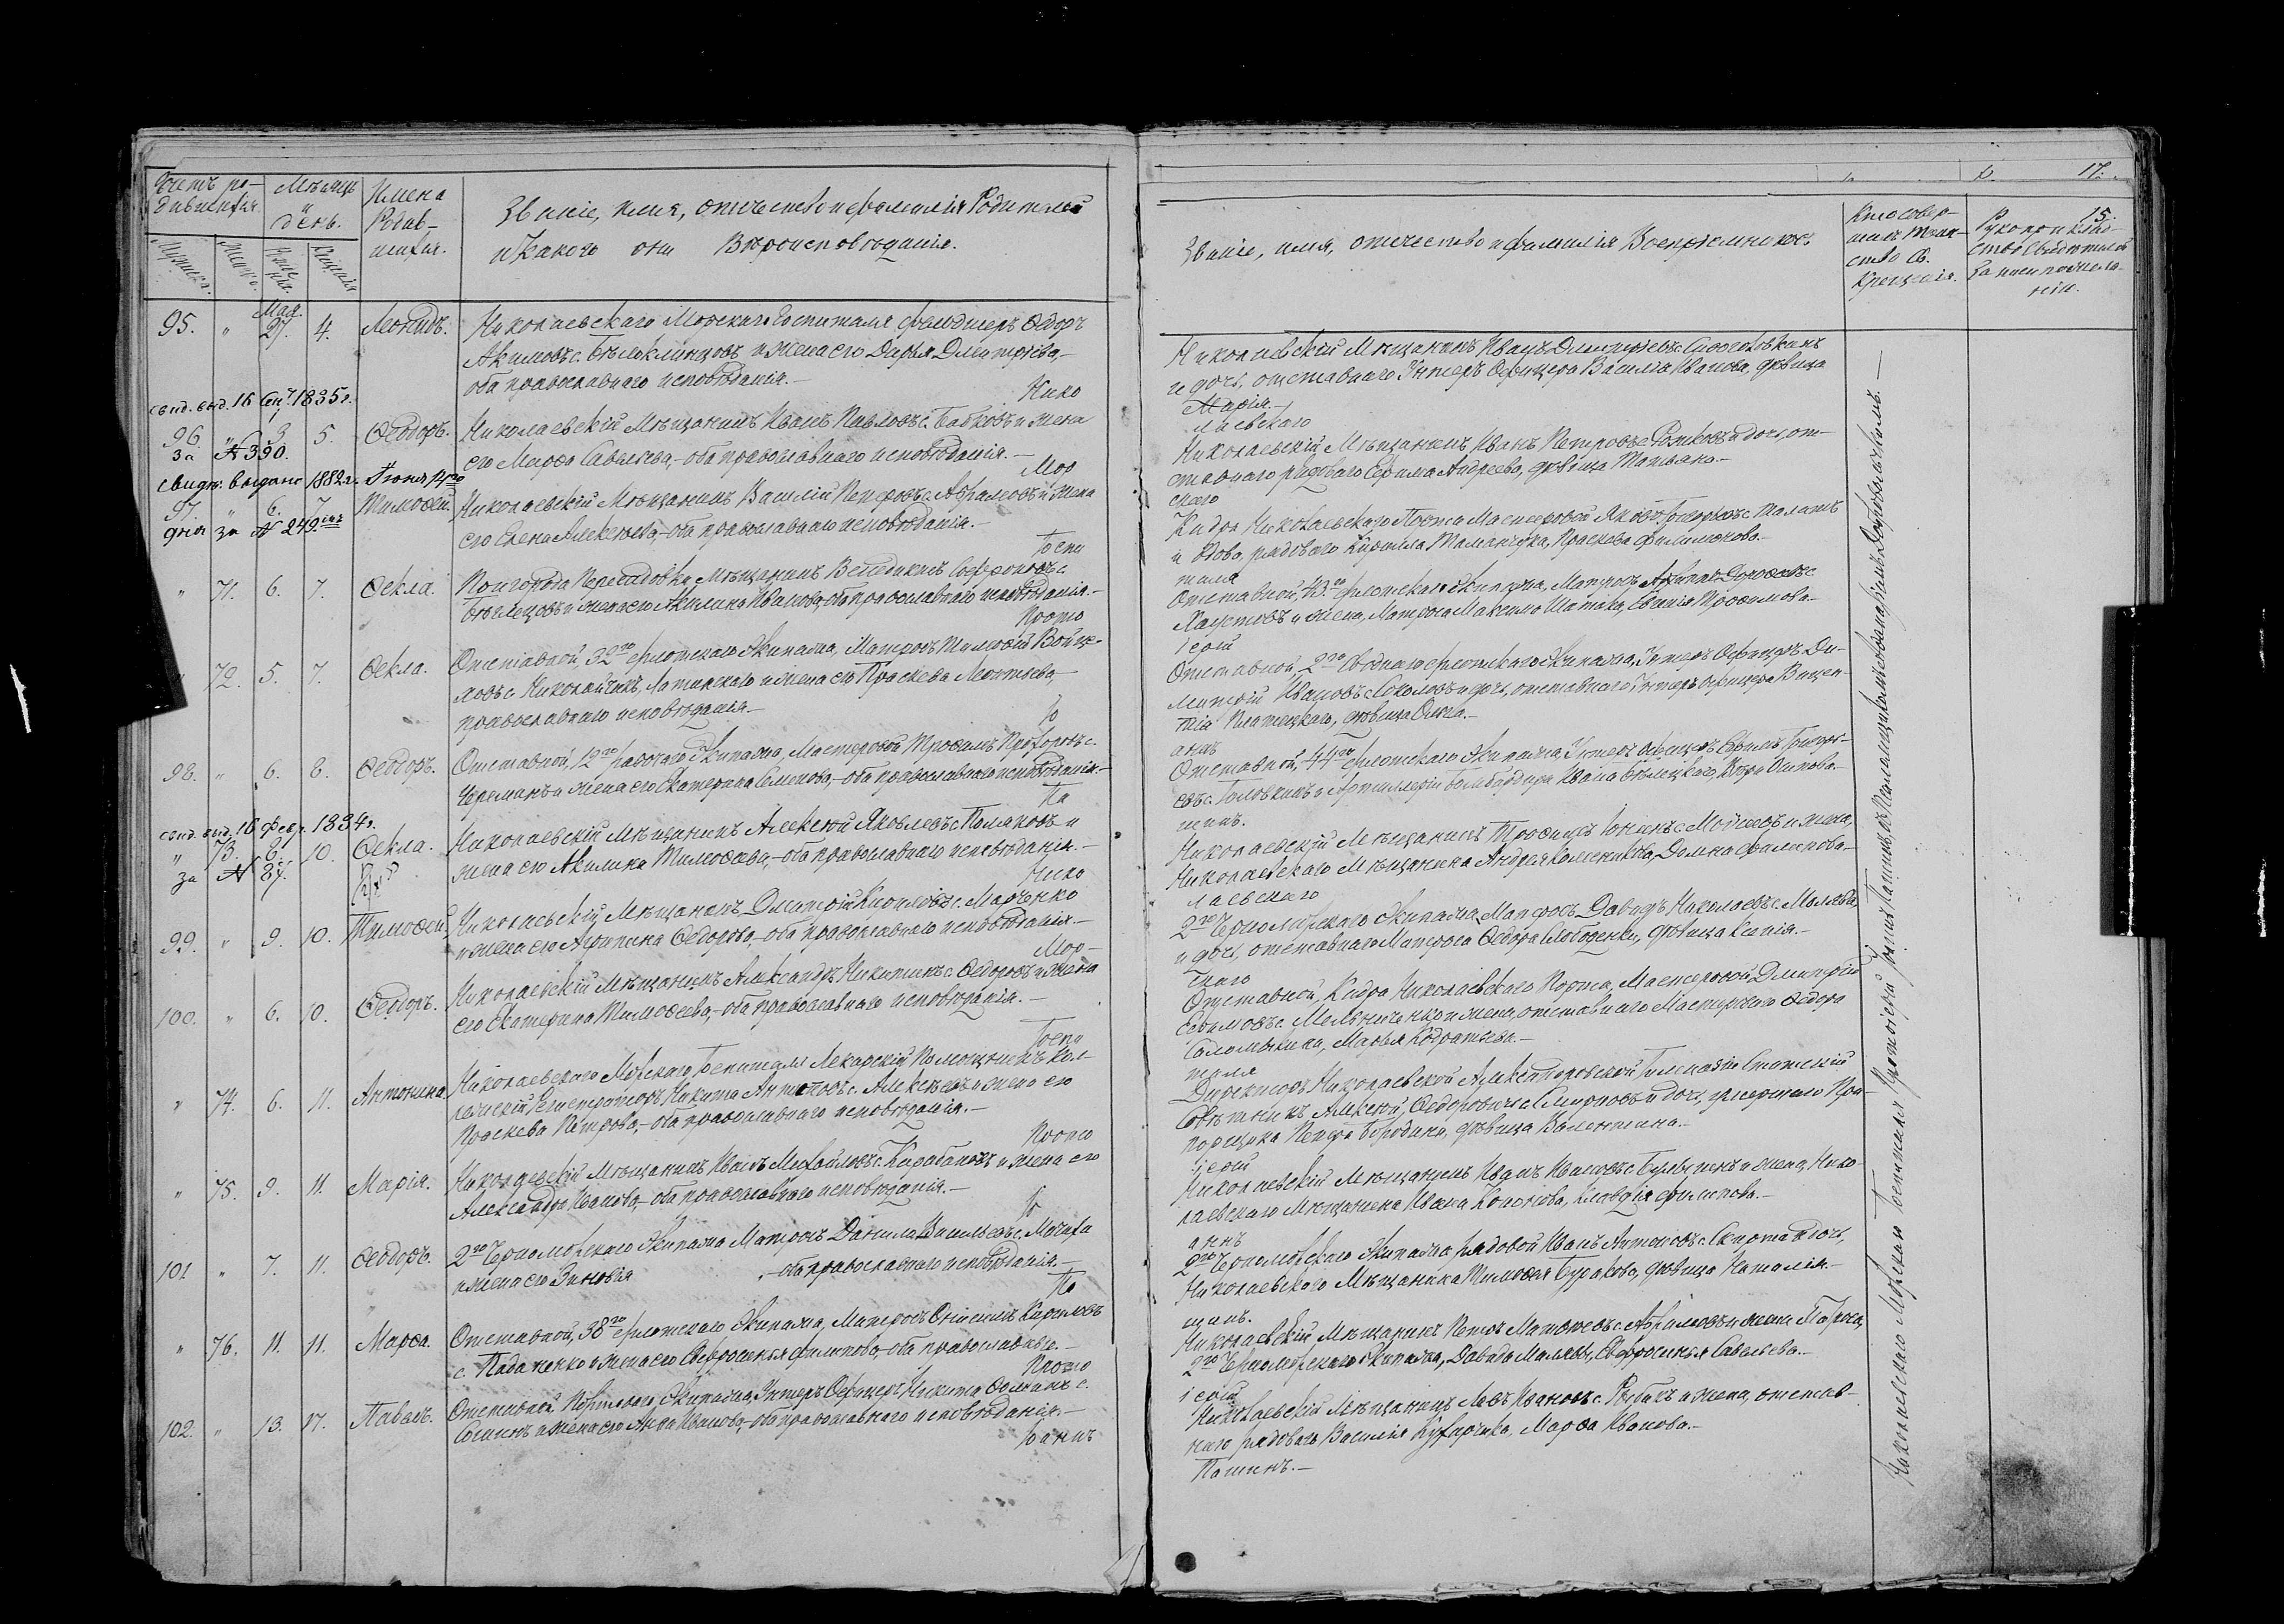 Счетъ ро-
дившихся.
Мѣсяцъ
и
день.
Имена
Родив-
шихся.
Званіе, имя, отчество и фамилія Родителей
и какого они Вѣроисповѣданія.
Мужска.
Женска.
Рожденія.
Крещенія
Мая.
95. " 27. 4. Леонидъ. Николаевскаго Морскаго Госпиталя фельдшеръ Ѳедоръ
Акимовъ с. и жена его Дарья Дмитріева,-
оба православнаго исповѣданія.-
Нико
свид. выд. 16 Сен. 1835 г.
96. " 3. 5. Ѳеодоръ. Николаевскій Мѣщанинъ Иванъ Павловъ с. Бабковъ и жена
за № 390.
его Марѳа Савельева,- оба православнаго исповѣданія.-
Мор
свидѣт. выдано 1882 г. Іюня 14го
97. " 6. 7. Тимоѳей. Николаевскій Мѣщанинъ Василій Петровъ с. Абрамовъ и жена
дня за № 249.
его Елена Алексѣева,- оба православнаго исповѣданія.-
Госпи
" 71. 6. 7. Ѳекла. Пригорода Пересадовки, Мѣщанинъ Венедиктъ Софроновъ с.
и жена его Акилина Иванова, оба православнаго исповѣданія.-
Прото
72. 5. 7. Ѳекла. Отставной, 32го флотскаго Экипажа, Матросъ Тимоѳей Войце-
ховъ с. Николайчикъ, Латинскаго и жена его Праскева Леонтьева,-
православнаго исповѣданія.-
Іо
98. " 6. 8. Ѳеодоръ. Отставной, 12го рабочаго Экипажа, Мастеровой Трофимъ Прохоровъ с.
и жена его Екатерина Семенова,- оба православнаго исповѣданія.-
Па
свид. выд. 16 февр. 1834 г.
" 73. 6. 10. Ѳекла. Николаевскій Мѣщанинъ Алексѣй Яковлевъ с. Поляковъ и
за № 87.
жена его Акилина Тимоѳеева,- оба православнаго исповѣданія.-
Нико
99. " 9. 10. Тимоѳей. Николаевскій Мѣщанинъ Дмитрій Кириловъ с. Марченко
и жена его Агрипина Ѳедорова,- оба православнаго исповѣданія.-
Мор-
100. " 6. 10. Ѳеодоръ. Николаевскій Мѣщанинъ Александръ Никитинъ с. Ѳедоровъ и жена
его Екатерина Тимоѳеева,- оба православнаго исповѣданія.-
Госпи
" 74. 6. 11. Антонина. Николаевскаго Морскаго Госпиталя Лекарскій Помощникъ Кол-
лежскій Регистраторъ Никита Антоновъ с. Алексѣевъ и жена его
Праскева Петрова,- оба православнаго исповѣданія.-
Прото
" 75. 9. 11. Марія. Николаевскій Мѣщанинъ Иванъ Михайловъ с. Карабановъ и жена его
Александра Иванова,- оба православнаго исповѣданія.-
Іо
101 " 7. 11. Ѳеодоръ. 2го Черноморскаго Экипажа Матросъ Данила Васильевъ с.
и жена его Зиновія ,- оба православнаго исповѣданія.-
Па
" 76. 11. 11. Марѳа. Отставной, 38го флотскаго Экипажа, Матросъ Онисимъ Кириловъ
с. и жена его Евфросинья Филипова,- оба православные.-
Прото
102. " 13. 17. Павелъ. Отставной Портоваго Экипажа, Унтеръ Офицеръ Никита Ѳоминъ с.
и жена его Анна Иванова,- оба православнаго исповѣданія.-
Іоаннъ
17.
15.
Званіе, имя, отчество и фамилія Воспріемниковъ.
Кто совер-
шилъ Таин-
ство Св.
Крещенія.
Рукоприклад-
ство Свидетелей
записи по жела-
нію.
Николаевскій Мѣщанинъ Иванъ Дмитріевъ с.
и дочь, отставнаго Унтеръ Офицера Василія Иванова, дѣвица
Марія.-
лаевскаго
Николаевскій Мѣщанинъ Иванъ Петровъ с. и дочь, от-
ставнаго рядоваго Ефима Андреева, дѣвица Татьяна.-
скаго
Кадра Николаевскаго Порта Мастеровой Яковъ Григорьевъ с.
и вдова, рядоваго Кирила Таманчука, Праскева Филимонова.-
таля
Отставной, флотскаго Экипажа, Матросъ Архипъ Дороѳеевъ с.
Хаустовъ и жена, Матроса Максима
іерей
Отставной, 2го Своднаго флотскаго Экипажа, Унтеръ Офицеръ Ди-
митрій Ивановъ с. Соколовъ и дочь, отставнаго Унтеръ Офицера Викен-
тія дѣвица Ольга.-
аннъ
Отставной, 44го флотскаго Экипажа, Унтеръ Офицеръ Ефимъ Григорь-
евъ с. Головкинъ и Артиллеріи Бомбардира Ивана Бѣлецкаго, Вѣра Осипова.-
шинъ.
Николаевскій Мѣщанинъ Трофимъ с. Мойсеевъ и жена,
Николаевскаго Мѣщанина Андрея Колесникова, Домна Филипова.-
лаевскаго
2го Черноморскаго Экипажа, Матросъ Давидъ Николаевъ с. Малява,
и дочь, отставнаго Матроса Ѳедора Слободенки, дѣвица Ксенія.-
скаго
Отставной, Кадра Николаевскаго Порта, Мастеровой Дмитрій
Ефимовъ с. Мельниченко и жена, отставнаго Мастероваго Ѳедора
Марья Кодратьева.-
таля
Директоръ Николаевской Александровской Гимназіи Статскій
Совѣтникъ Алексѣй Ѳедоровичъ с. Смирновъ и дочь, умершаго Пра-
порщика Петра Бородина, дѣвица Валентина.-
іерей
Николаевскій Мѣщанинъ Иванъ Ивановъ с. и жена, Нико-
лаевскаго Мѣщанина Ивана Кононова, Клавдія Филипова.-
аннъ
2го Черноморскаго Экипажа, рядовой Иванъ Антоновъ с. и дочь,
Николаевскаго Мѣщанина Тимоѳея Буракова, дѣвица Наталія.-
шинъ.
Николаевскій Мѣщанинъ Петръ Матвѣевъ с. Абрамовъ и жена Матроса,
2го Черноморскаго Экипажа, Давида Малявы, Евфросинья Савельева.-
іерей
Николаевскій Мѣщанинъ Левъ Ивановъ с. и жена, отстав-
наго рядоваго Василія Кухарчика, Марѳа Иванова.-
Пашинъ.-
Николаевскаго Морскаго Госпиталя Протоіерей Іоаннъ Пашинъ, съ Псаломщикомъ